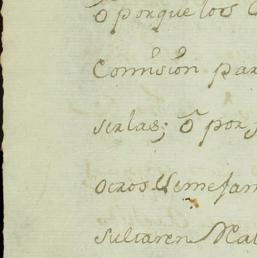 ó porque los
Comision par
serlas; ó por
otros semejan
sultaren Mal